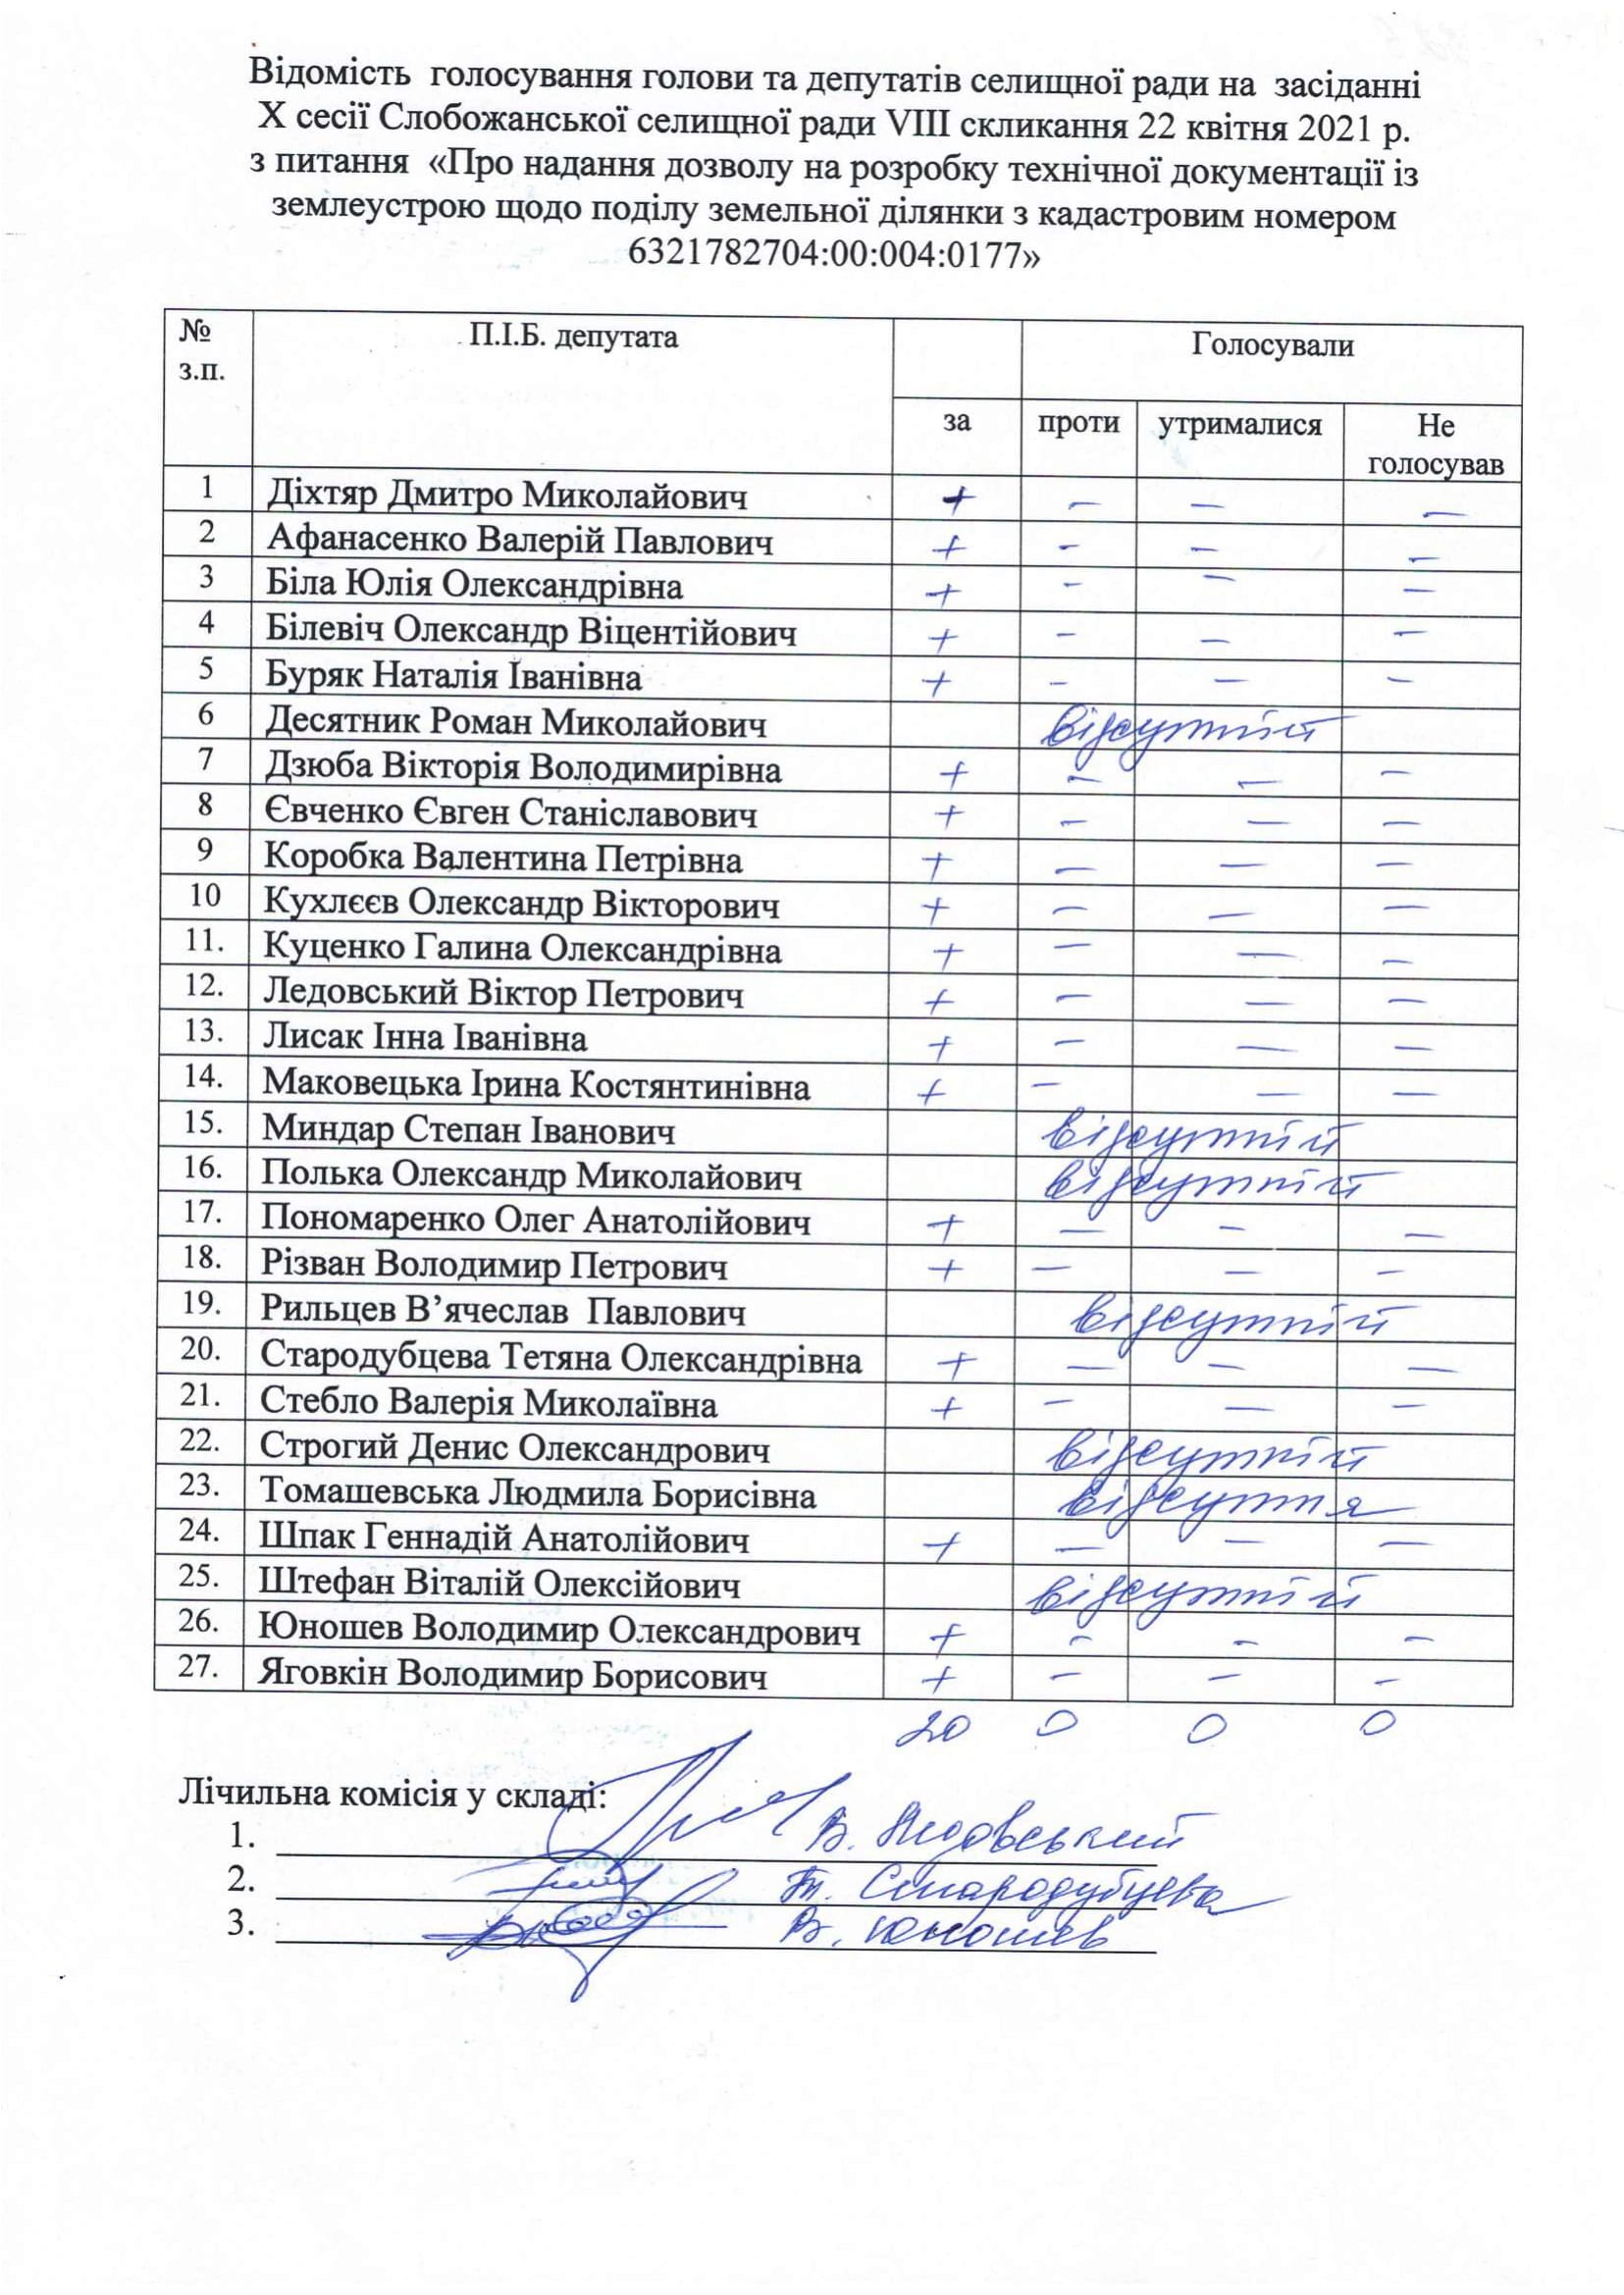 Відомість голосування голови та депутатів селищної ради на засіданні
X сесії Слобожанської селищної ради VIII скликання 22 квітня 2021 р.
з питання «Про надання дозволу на розробку технічної документації із
землеустрою щодо поділу земельної ділянки з кадастровим номером
6321782704:00:004:0177»
№ з.п. П.І.Б. депутата Голосували
за проти утрималися Не голосував
1 Діхтяр Дмитро Миколайович + – – –
2 Афанасенко Валерій Павлович + – – –
3 Біла Юлія Олександрівна + – – –
4 Білевіч Олександр Віцентійович + – – –
5 Буряк Наталія Іванівна + – – –
6 Десятник Роман Миколайович відсутній
7 Дзюба Вікторія Володимирівна + – – –
8 Євченко Євген Станіславович + – – –
9 Коробка Валентина Петрівна + – – –
10 Кухлєєв Олександр Вікторович + – – –
11. Куценко Галина Олександрівна + – – –
12. Ледовський Віктор Петрович + – – –
13. Лисак Інна Іванівна + – – –
14. Маковецька Ірина Костянтинівна + – – –
15. Миндар Степан Іванович відсутній
16. Полька Олександр Миколайович відсутній
17. Пономаренко Олег Анатолійович + – – –
18. Різван Володимир Петрович + – – –
19. Рильцев В’ячеслав Павлович відсутній
20. Стародубцева Тетяна Олександрівна + – – –
21. Стебло Валерія Миколаївна + – – –
22. Строгий Денис Олександрович відсутній
23. Томашевська Людмила Борисівна відсутня
24. Шпак Геннадій Анатолійович + – – –
25. Штефан Віталій Олексійович відсутній
26. Юношев Володимир Олександрович + – – –
27. Яговкін Володимир Борисович + – – –
20 0 0 0
Лічильна комісія у складі:
1. В. Ледовський
2. Т. Стародубцева
3. В. Юношев